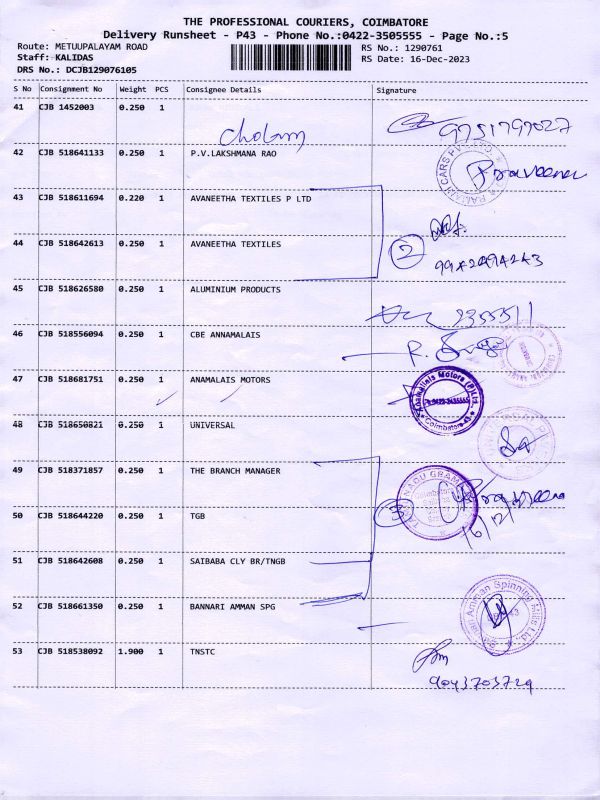 THE PROFESSIONAL COURIERS, COIMBATORE
Delivery Runsheet - P43 - Phone No.:0422-3505555 - Page No.:5
Route: METUUPALAYAM ROAD RS No.: 1290761
Staff: KALIDAS RS Date: 16-Dec-2023
DRS No.: DCJB129076105
S No Consignment No Weight PCS Consignee Details Signature
41 CJB 1452003 0.250 1
9751797027
42 CJB 518641133 0.250 1 P.V.LAKSHMANA RAO
43 CJB 518611694 0.220 1 AVANEETHA TEXTILES P LTD
44 CJB 518642613 0.250 1 AVANEETHA TEXTILES
2
45 CJB 518626580 0.250 1 ALUMINIUM PRODUCTS
46 CJB 518556094 0.250 1 CBE ANNAMALAIS
47 CJB 518681751 0.250 1 ANAMALAIS MOTORS
48 CJB 518650821 0.250 1 UNIVERSAL
49 CJB 518371857 0.250 1 THE BRANCH MANAGER
50 CJB 518644220 0.250 1 TGB
3
51 CJB 518642608 0.250 1 SAIBABA CLY BR/TNGB
52 CJB 518661350 0.250 1 BANNARI AMMAN SPG
53 CJB 518538092 1.900 1 TNSTC
9043703729